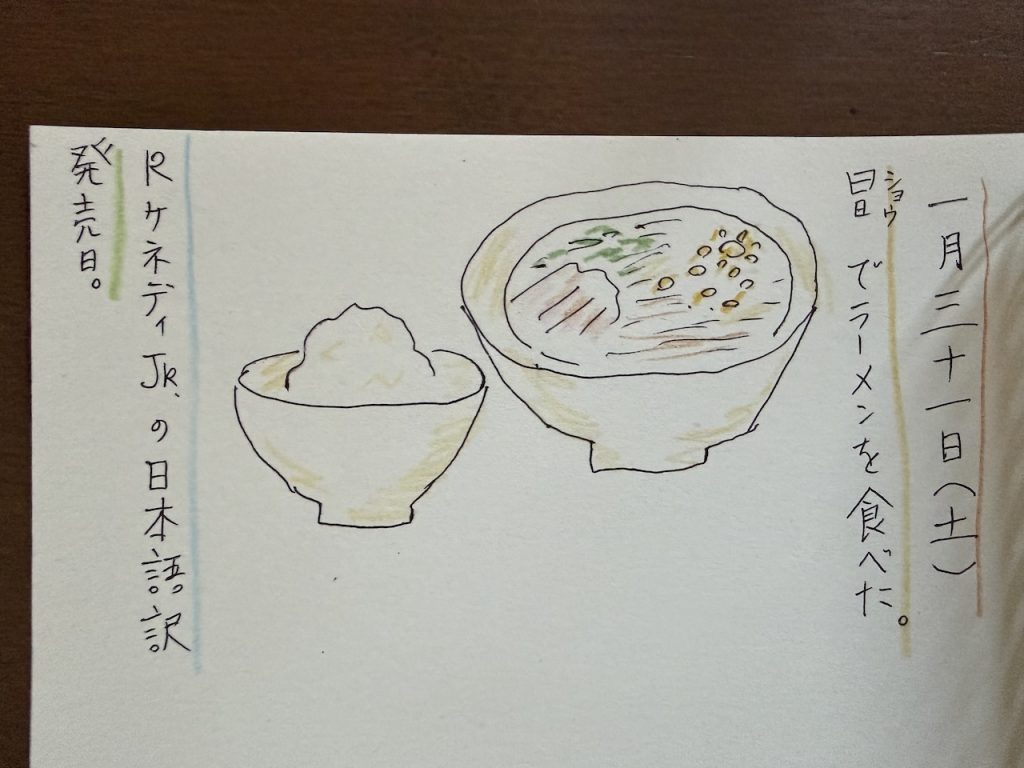 一月三十一日(土)
ショウ
昌でラーメンを食べた。
RケネディJR.の日本語訳
発売日。